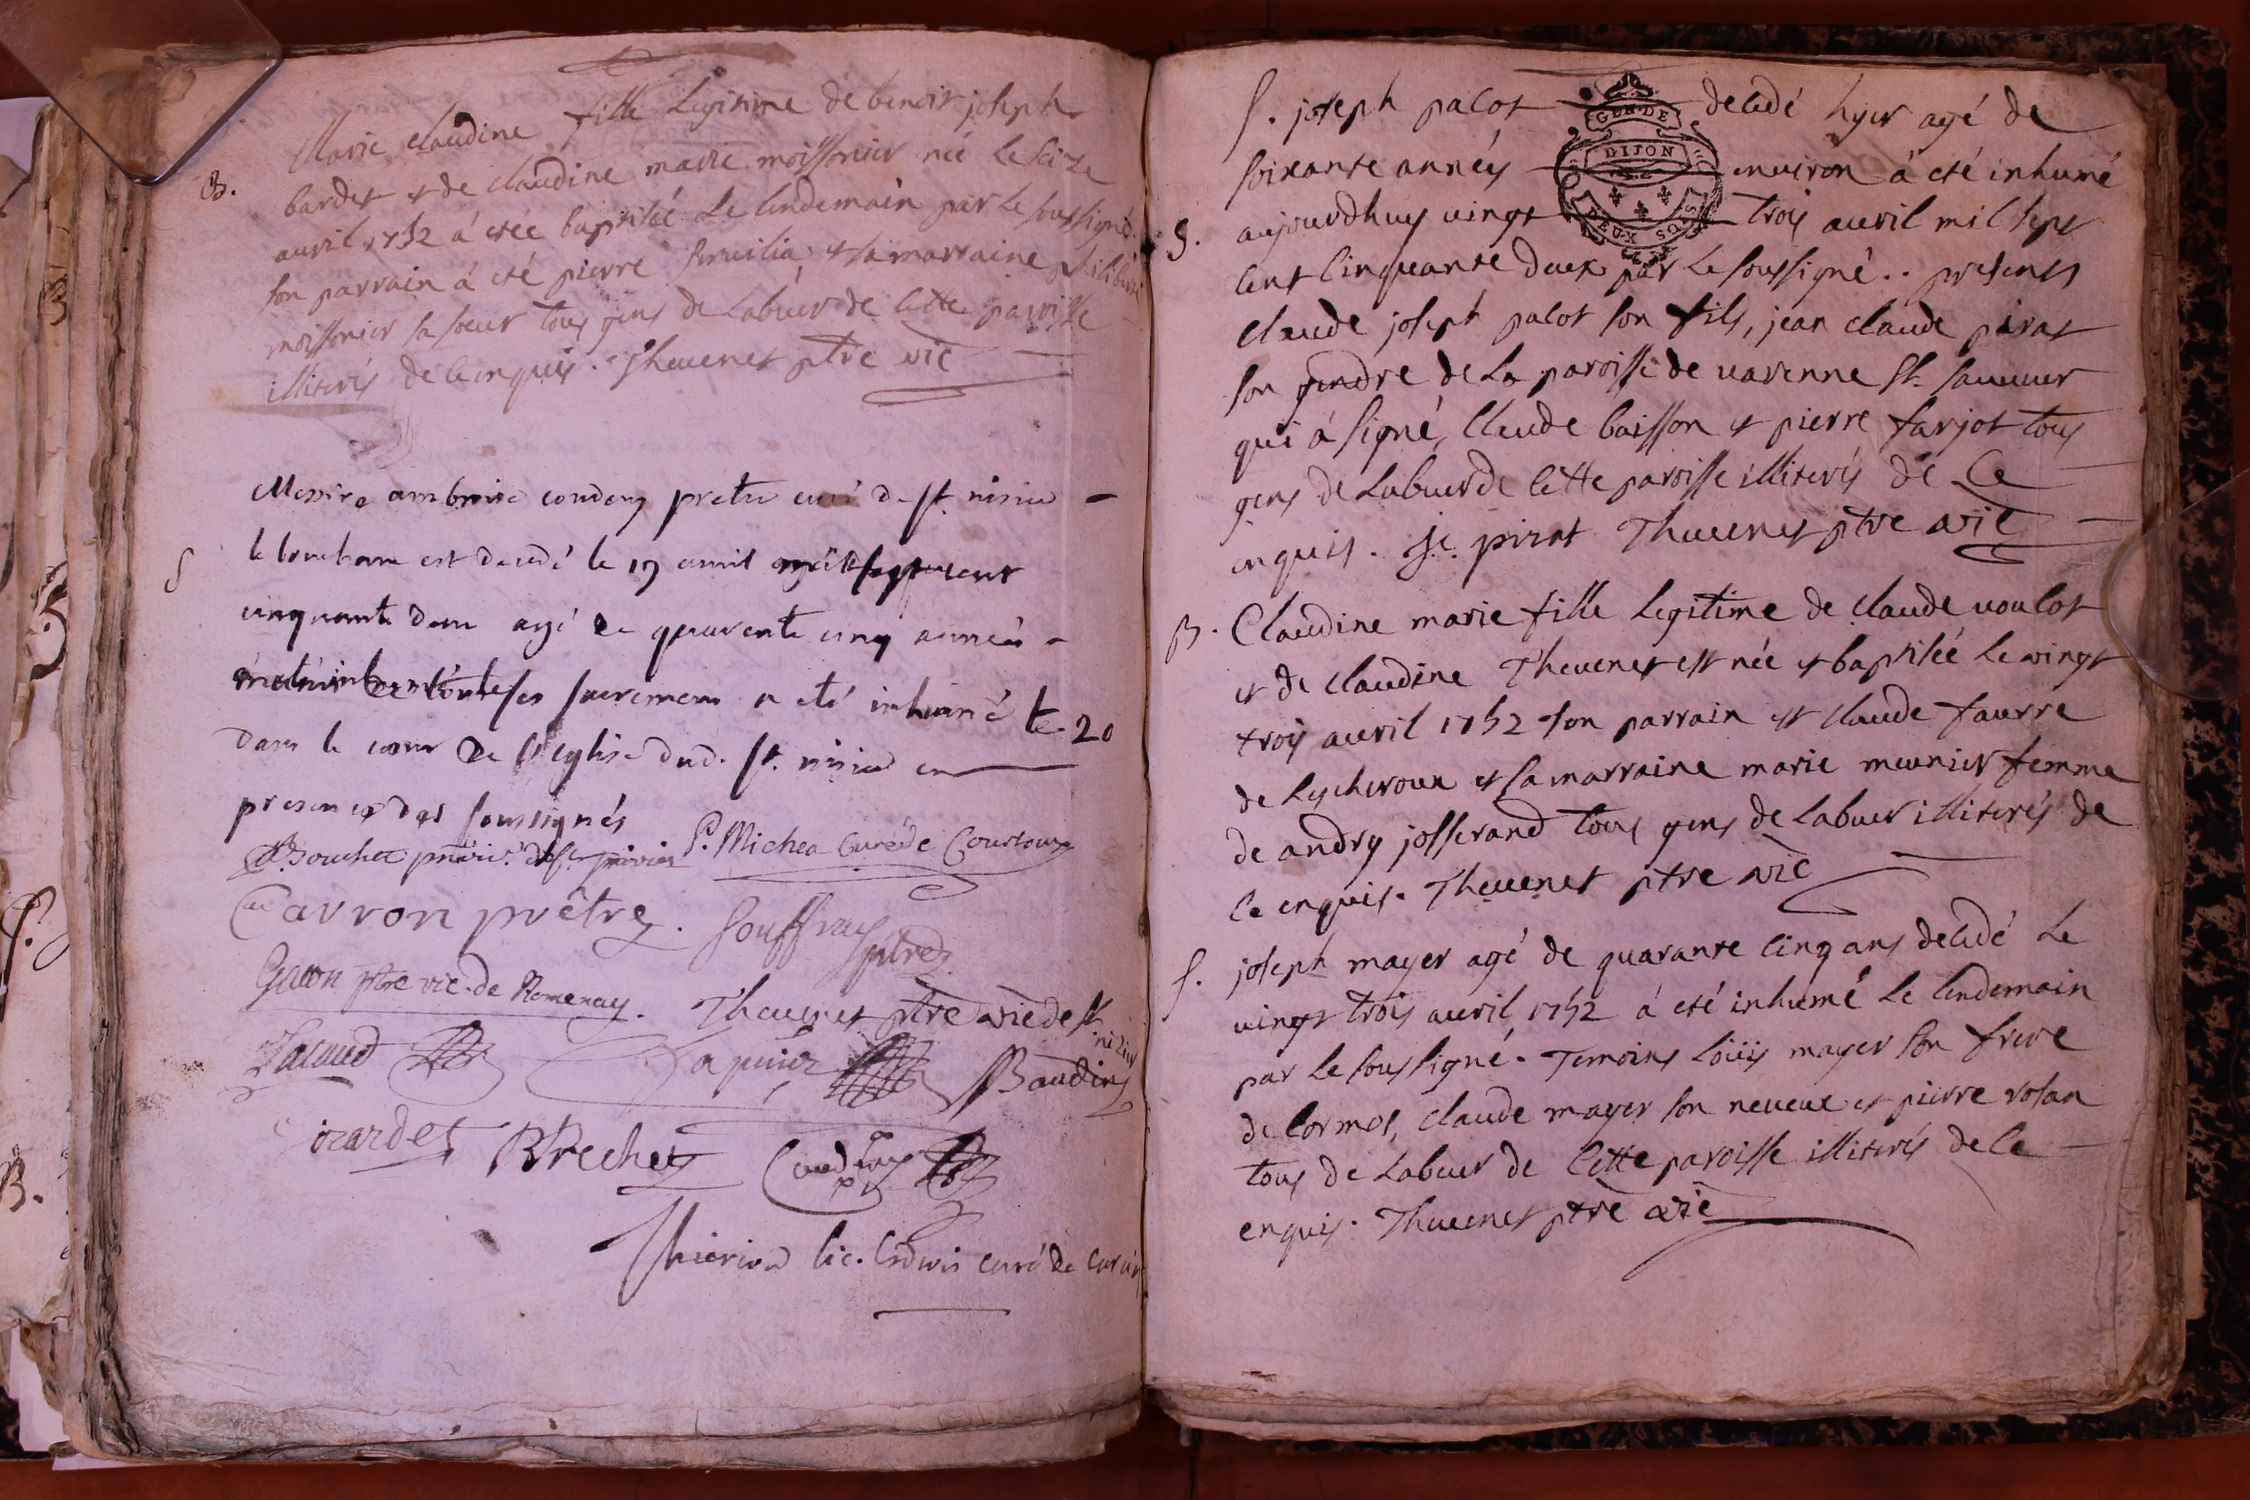 B.
Marie claudine fille Legitime de benoit joseph
bardet et de claudine marie moissonier née Le seize
auril 1752 á étée baptisée Le lendemain par Le soussigné.
son parrain á eté pierre & sa marraine philiberte
moissonier sa soeur tous gens de Labeur de cette paroisse
illiterés de ce enquis. Theuenet ptre vic
S
Messire ambroise condemy pretre curé de st. nisier
le bouchoux est decedé le 19 auril mil sept cent
cinquante deux agé de quarente cinq années
ses sacremens a eté inhumé le 20
dans le coeur de l'eglise dud. st. nisier en
presence des soussignés
Bouchet P. Michea Curé de
Carron prêtre. Souffray ptre
Gacon ptre vic. de Romenay. Theuenet ptre vic de st nisier
Lacaud Baudin
Girardet Brechet
curé de
S. joseph pacot decedé hyer agé de
GEN. DE
DIJON
DEUX SOLS
soixante années enuiron á eté inhumé
S.
aujourdhuy uingt trois auril mil sept
cent cinquante deux par Le soussigné.. presents
claude joseph pacot son fils, jean claude pirat
son gendre de La paroisse de uarenne st. sauueur
qui á signé, Claude baisson et pierre farjot tous
gens de Labeur de cette paroisse illiterés de ce
enquis. j.c. pirat Theuenet ptre vic
B. Claudine marie fille Legitime de claude uoulot
et de claudine Theuenet est née et baptisée Le vingt
trois auril 1752 son parrain est claude faurre
de Lescheroux et sa marraine marie meunier femme
de andry josserand tous gens de Labeur illiterés de
ce enquis. Theuenet ptre vic
S. joseph mayer agé de quarante cinq ans decedé Le
uingt trois auril 1752 á eté inhumé Le lendemain
par Le soussigné. Temoins Loüis mayer son frere
de cormos, claude mayer son neueux et pierre rosan
tous de Labeur de cette paroisse illiterés de ce
enquis. Theuenet ptre vic